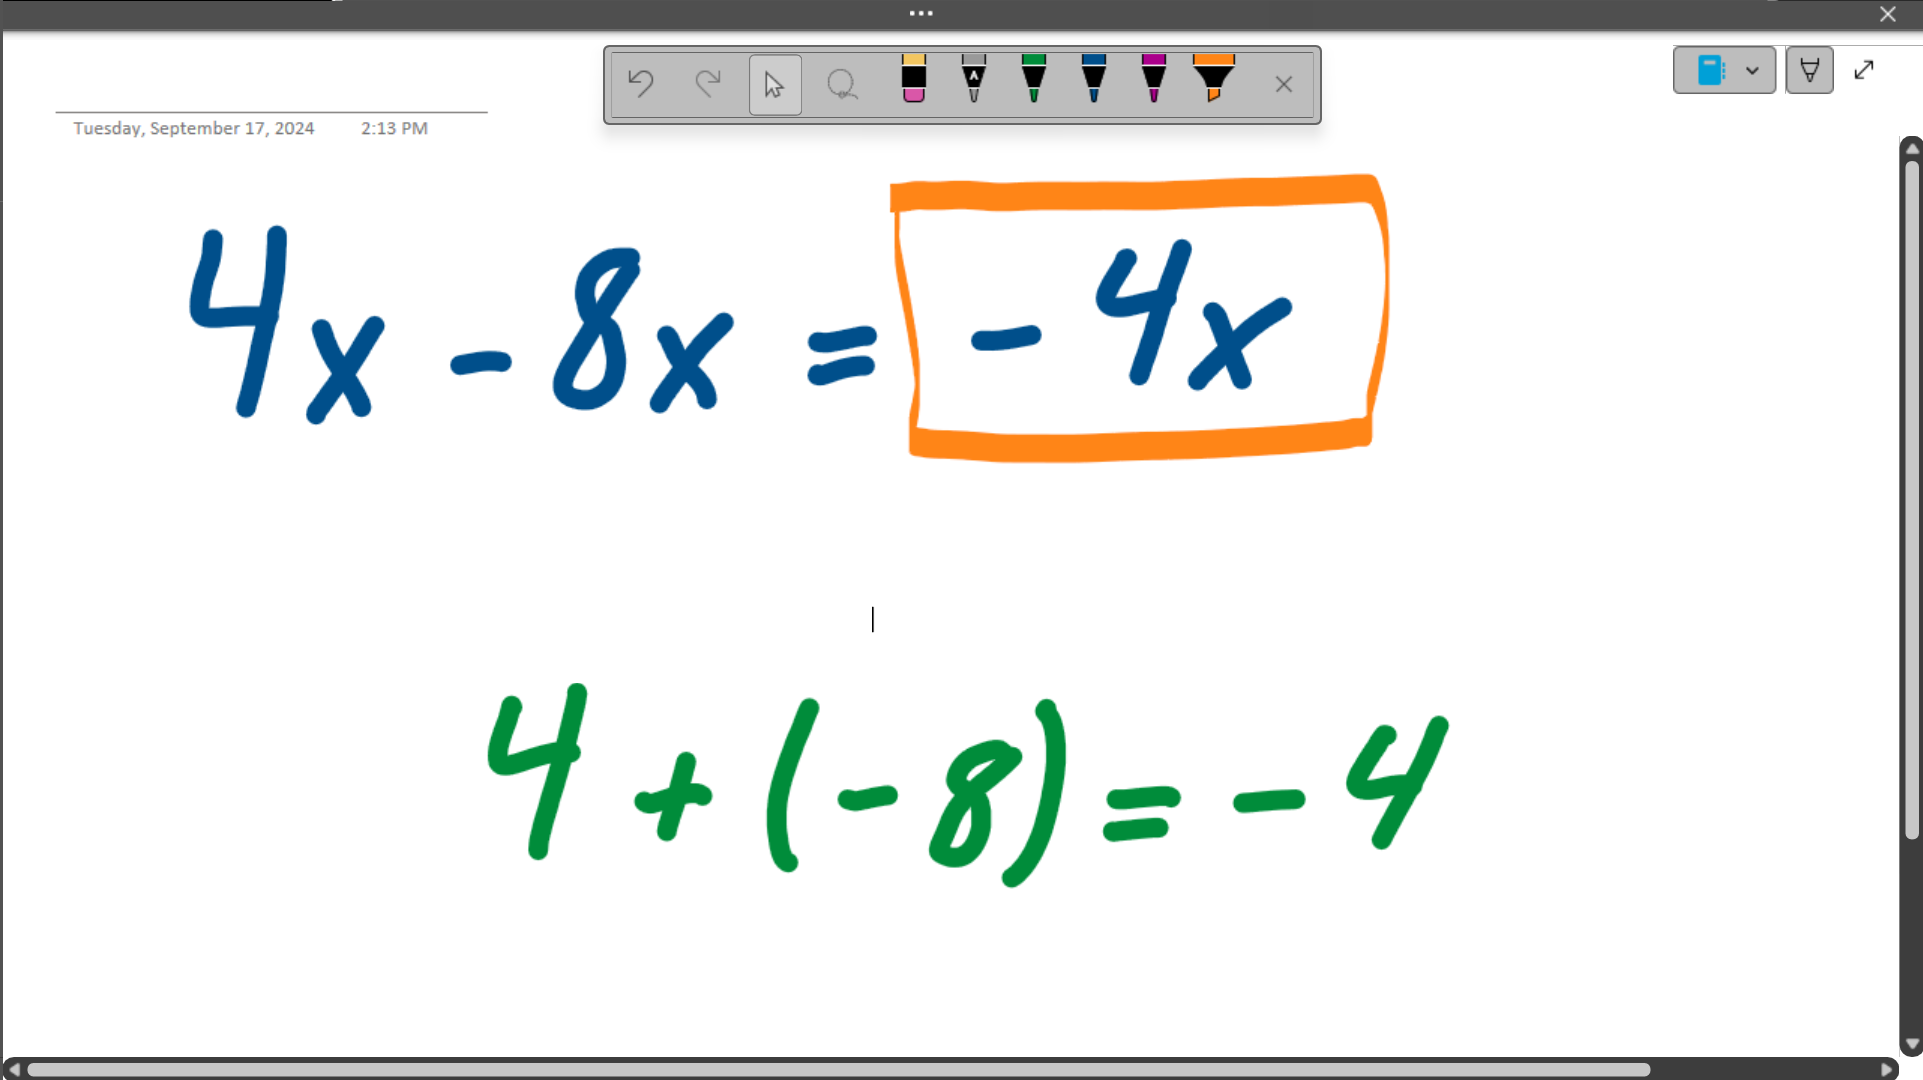 Tuesday, September 17, 2024 2:13 PM
4x - 8x = - 4x
4 + (-8) = -4